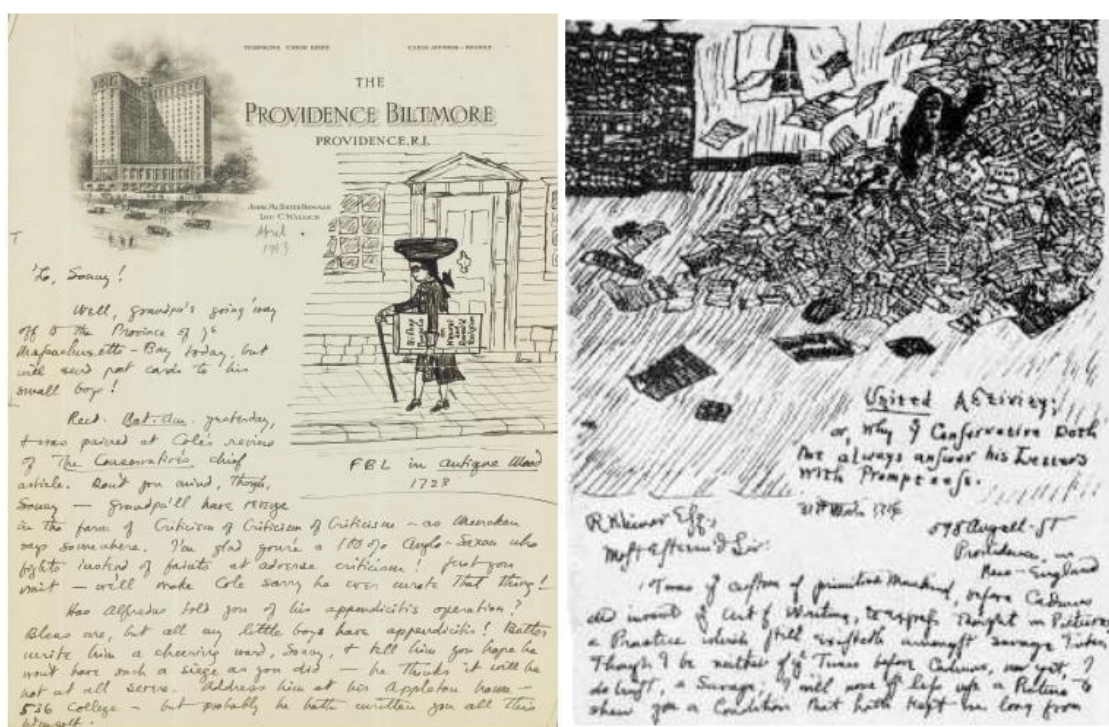 THE
PROVIDENCE BILTMORE
PROVIDENCE, R.I.
April
'Lo, Sonny!
Well, grandpa's going 'way
off to the Province of yᵉ
Massachusetts-Bay today, but
will send post cards to his
small boys!
Recd. Bat. Am. yesterday,
& was pained at Cole's review
of The Conservative's chief
article. Don't you mind, though,
Sonny — Grandpa'll have revenge
in the form of Criticism of Criticism of Criticism — as Mencken
says somewhere. I'm glad you're a 100% Anglo-Saxon who
fights instead of faints at adverse criticism! Just you
wait — we'll make Cole sorry he ever wrote that thing!
Has Alfredus told you of his appendicitis operation?
Bless me, but all my little boys have appendicitis! Better
write him a cheering word, Sonny, & tell him you hope he
won't have such a siege as you did — he thinks it will be
not at all severe. Address him at his Appleton home —
536 College — but probably he hath written you all this
himself.
FBL in antique Mood
1728
United Activity;
or, Why yᵉ Conservative Doth
Not always answer his Letters
With Promptness.
R Kleiner Esq.,
Most Esteem'd Sir:
598 Angell-St
Providence, in
New-England
'Twas yᵉ custom of primitive Mankind, before Cadmus
did invent yᵉ Art of Writing, to express Thought in Pictures,
a Practice which still existeth amongst savage Tribes.
Though I be neither of yᵉ Times before Cadmus, nor yet, I
do trust, a Savage, I will now use a Picture to
shew you a Condition that hath kept me long from